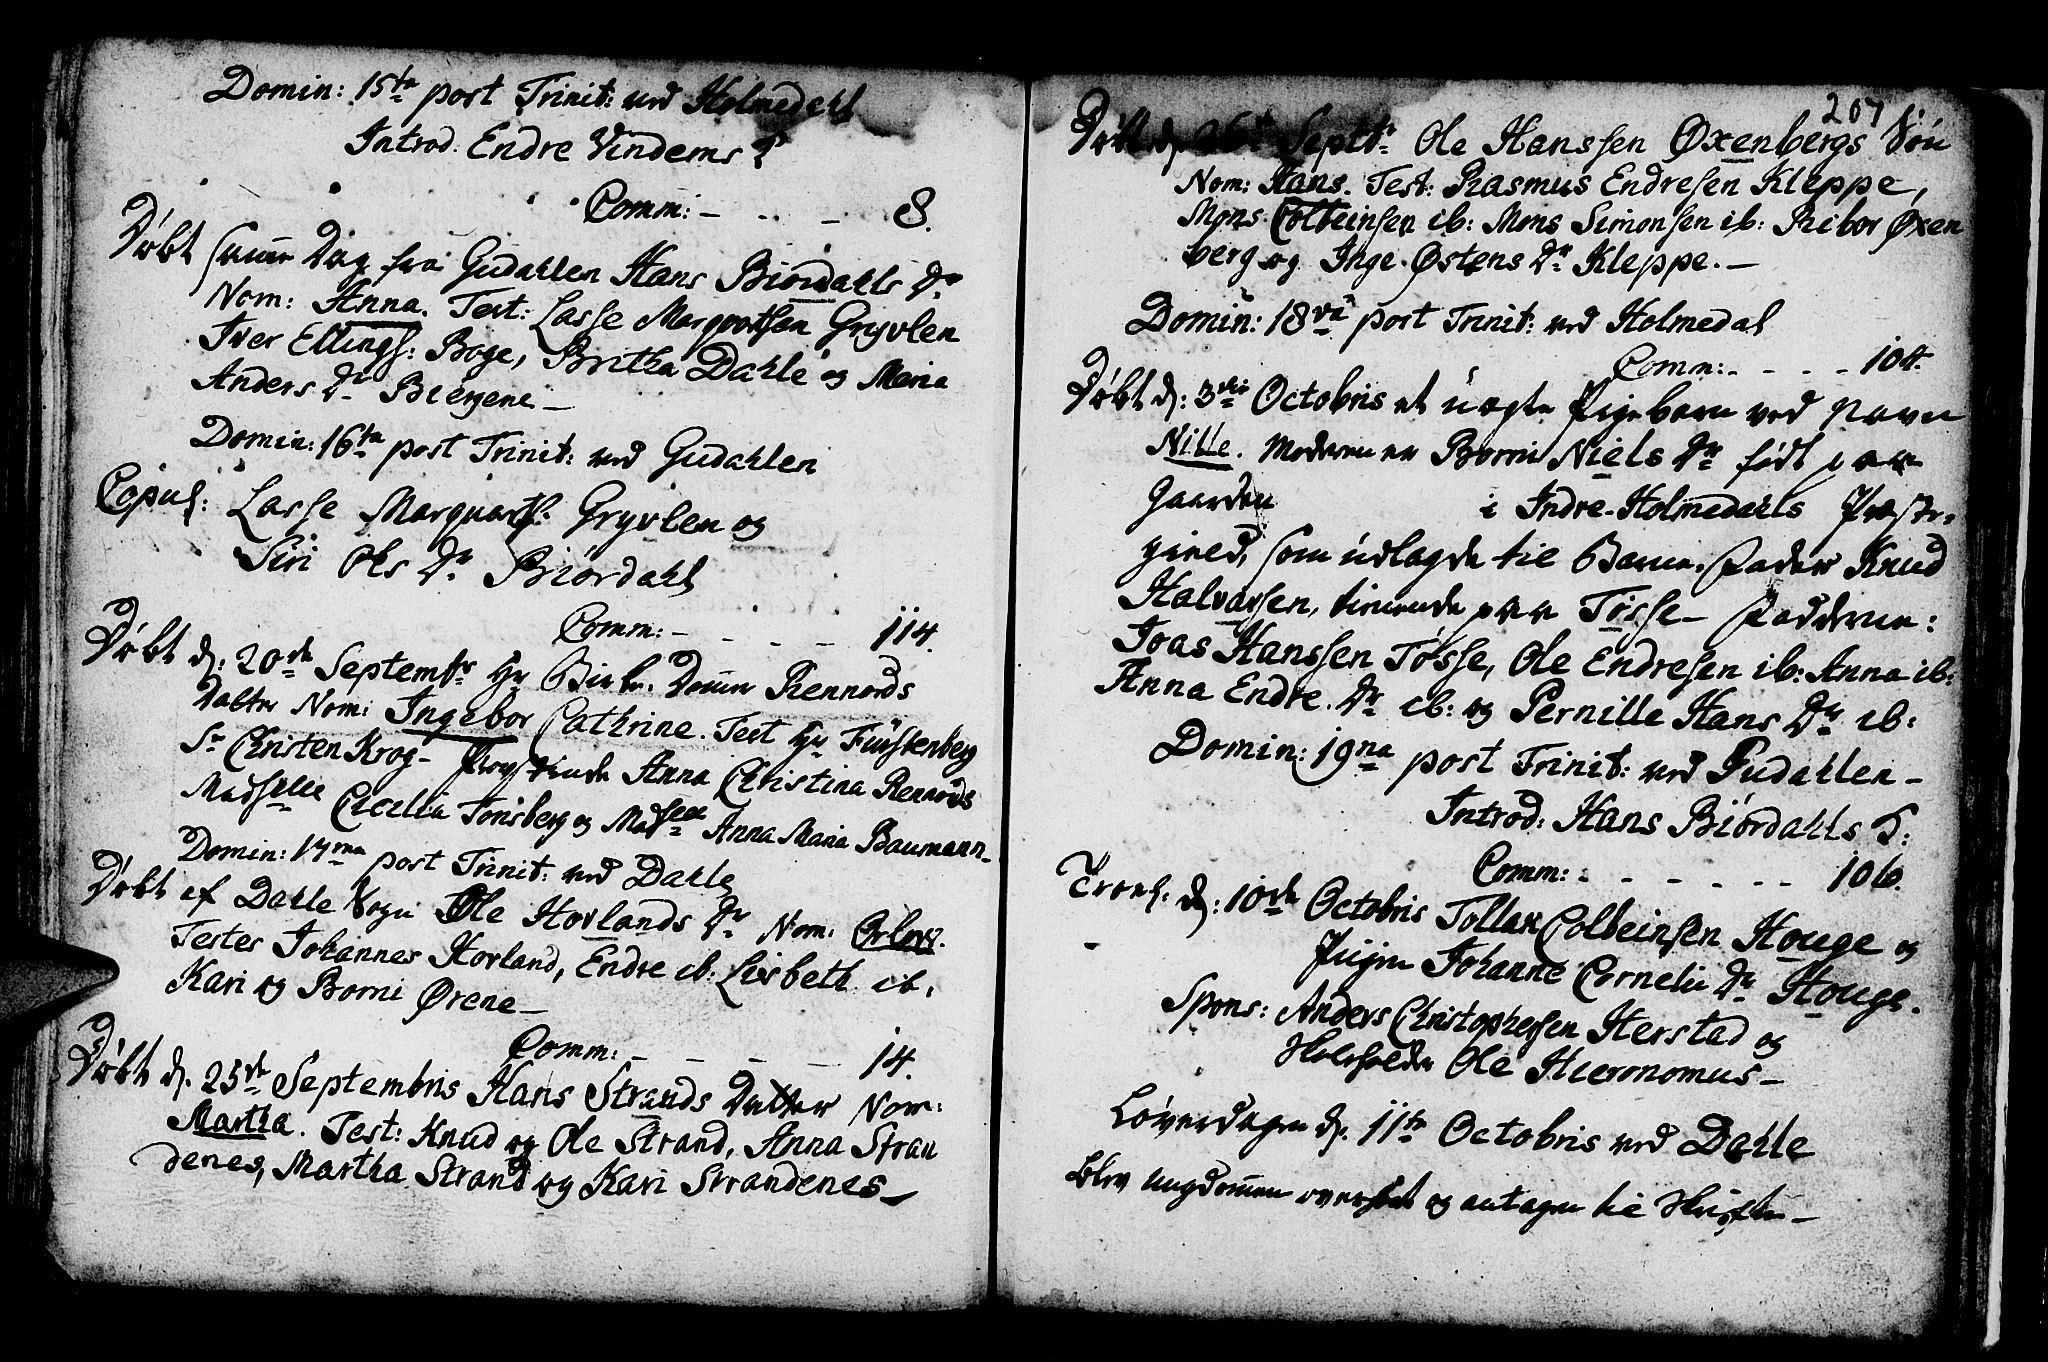 Domin: 15ta post Trinit: ved Holmedahl
Introd. Endre Vindems
Comm: - - - 8.
Døbt samme Dag fra Gudahlen Hans Biørdahls Dr
Nom: Anna. Test: Lasse Marqvortsen Gryvlen
Iver Ellings: Boge, Britha Dahle og Maria
Anders Dr Biergene -
Domin: 16ta post Trinit: ved Gudahlen
Copul: Lasse Marqvarts: Gryvlen og
Siri Ols Dr Biørdahl
Comm: - - - - 114.
Døbt d: 20de Septembr Hr Rennords
Datter Nom: Ingebor Cathrine. Test Hr Fürstenberg
Sr Christen Krog - Anna Christina Rennords
Madselle Cecilia Tønsberg og Madselle Anna Maria Baumann -
Domin: 17ma post Trinit: ved Dahle
Døbt af Dahle Sogn Ole Horlands Dr Nom:
Testes Johannes Horland, Endre ib: Lisbeth ib.
Kari og Borni Ørene -
Comm: - - - - 14.
Døbt d. 25de Septembris Hans Strands Datter Nom:
Martha. Test: Knud og Ole Strand, Anna Stran
denes, Martha Strand og Kari Strandenes -
207
Døbt d. 26te Septbr: Ole Hanssen Øxenbergs Søn
Nom: Hans. Test: Rasmus Endresen Kleppe,
Mons Colbeinsen ib: Mons Simonsen ib: Ribor Øxen
berg og Inge Østens Dr Kleppe. -
Domin: 18va post Trinit: ved Holmedal
Comm: - - - - 104.
Døbt d: 3die Octobris et uægte Pigebarn ved Navn
Nille. Moderen er Borni Niels Dr født paa
Gaarden i Indre-Holmedahls Præste-
gield, som udlagde til Barne-Fader Knud
Halvarsen, tienende paa Tøsse - Fadderne:
Joas Hanssen Tøsse, Ole Endresen ib: Anna ib:
Anna Endre Dr ib: og Pernille Hans Dr ib:
Domin: 19na post Trinit: ved Gudahlen -
Introd: Hans Biørdahls
Comm: - - - - - - 106.
Trol. d: 10de Octobris Tollak Colbeinsen Houge og
Pigen Johanne Corneli Dr Houge.
Spons: Anders Christophersen Herstad og
Ole Hieronomus -
Løverdagen d. 11te Octobris ved Dahle
blev Ungdommen overhørt og antagen til Skrifte -